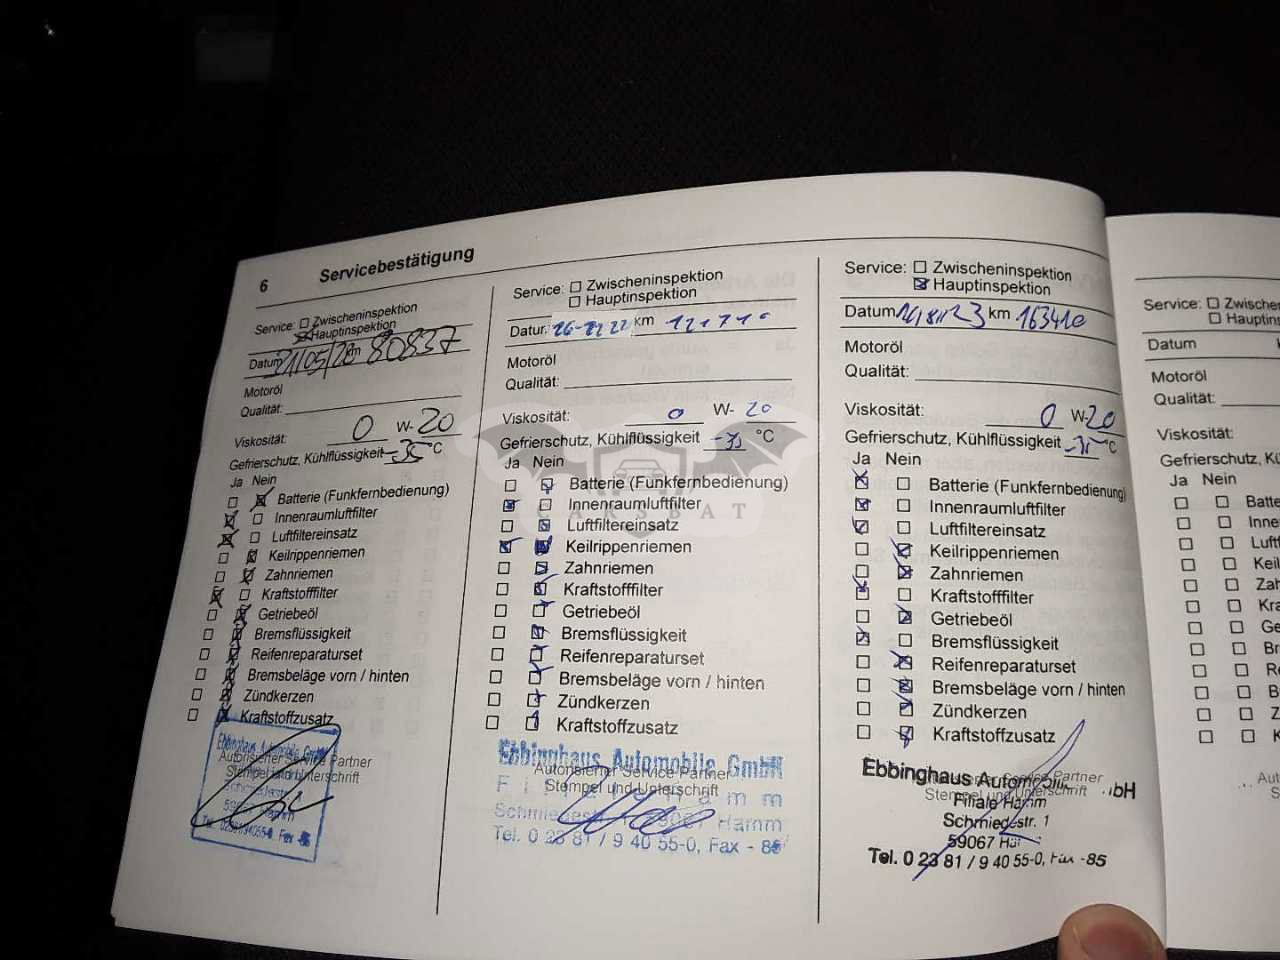 6 Servicebestätigung
Service: Zwischeninspektion
Hauptinspektion
Datum 21/05/20 km 80837
Motoröl
Qualität:
Viskosität: 0 W- 20
Gefrierschutz, Kühlflüssigkeit -35 °C
Ja Nein
Batterie (Funkfernbedienung)
Innenraumluftfilter
Luftfiltereinsatz
Keilrippenriemen
Zahnriemen
Kraftstofffilter
Getriebeöl
Bremsflüssigkeit
Reifenreparaturset
Bremsbeläge vorn / hinten
Zündkerzen
Kraftstoffzusatz
Ebbinghaus Automobile GmbH
Autorisierter Service Partner
Stempel und Unterschrift
Service: Zwischeninspektion
Hauptinspektion
km
Motoröl
Qualität:
Viskosität: 0 W- 20
Gefrierschutz, Kühlflüssigkeit -35 °C
Ja Nein
Batterie (Funkfernbedienung)
Innenraumluftfilter
Luftfiltereinsatz
Keilrippenriemen
Zahnriemen
Kraftstofffilter
Getriebeöl
Bremsflüssigkeit
Reifenreparaturset
Bremsbeläge vorn / hinten
Zündkerzen
Kraftstoffzusatz
Ebbinghaus Automobile GmbH
Autorisierter Service Partner
Stempel und Unterschrift
Filiale Hamm
59067 Hamm
Tel. 0 23 81 / 9 40 55-0, Fax - 85
Service: Zwischeninspektion
Hauptinspektion
Datum km 163410
Motoröl
Qualität:
Viskosität: 0 W- 20
Gefrierschutz, Kühlflüssigkeit -35 °C
Ja Nein
Batterie (Funkfernbedienung)
Innenraumluftfilter
Luftfiltereinsatz
Keilrippenriemen
Zahnriemen
Kraftstofffilter
Getriebeöl
Bremsflüssigkeit
Reifenreparaturset
Bremsbeläge vorn / hinten
Zündkerzen
Kraftstoffzusatz
Ebbinghaus
Service Partner
Stempel und Unterschrift
Filiale Hamm
Schmiedestr. 1
59067
Tel. 0 23 81 / 9 40 55-0, Fax -85
Service: Zwischen
Hauptin
Datum
Motoröl
Qualität:
Viskosität:
Gefrierschutz, Kü
Ja Nein
Batte
Inne
Luftf
Keil
Zah
Kra
Ge
Br
Re
B
Z
K
CARSBAT